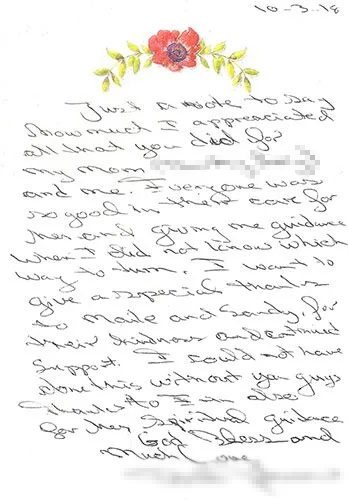 10-3-18
Just a note to say
how much I appreciated
all that you did for
my Mom
and me. Everyone was
so good in their care for
her and giving me guidance
when I did not know which
way to turn. I want to
give a special thanks
to and Sandy, for
their kindness and continued
support. I could not have
done this without you guys
Thanks to also
for her Spiritual guidance
God Bless and
Much Love